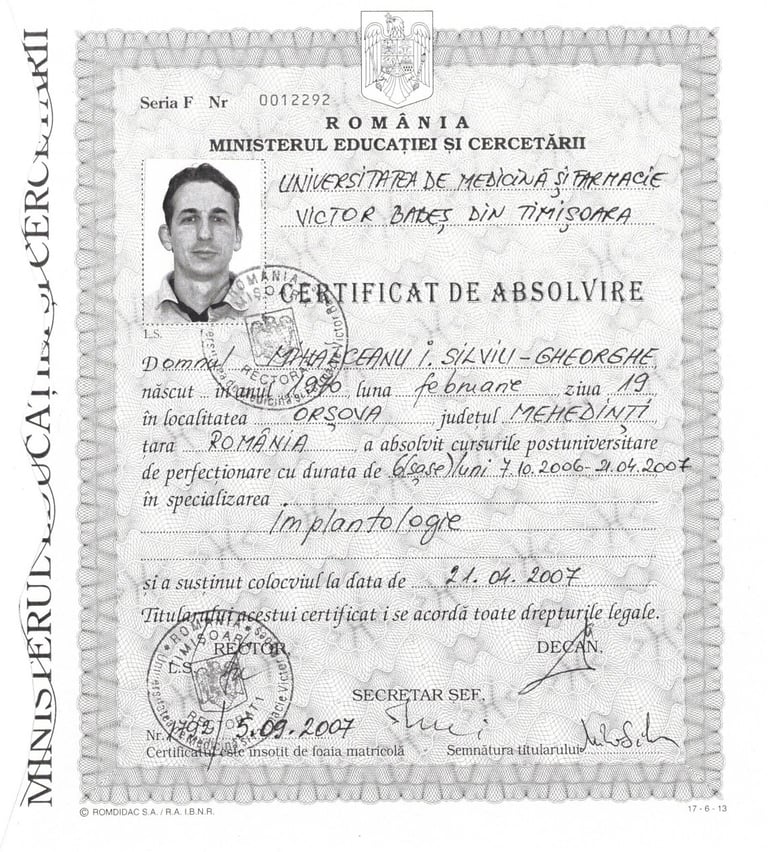 MINISTERUL EDUCAȚIEI ȘI CERCETĂRII
Seria F Nr 0012292
ROMÂNIA
MINISTERUL EDUCAȚIEI ȘI CERCETĂRII
UNIVERSITATEA DE MEDICINĂ ȘI FARMACIE
VICTOR BABEȘ DIN TIMIȘOARA
CERTIFICAT DE ABSOLVIRE
L.S.
Domnul MIHAICEANU I. SILVIU-GHEORGHE
născut în anul 1970 luna februarie ziua 19
în localitatea ORȘOVA județul MEHEDINȚI
tara ROMÂNIA a absolvit cursurile postuniversitare
de perfecționare cu durata de 6(șase)luni 7.10.2006-21.04.2007
în specializarea
Implantologie
si a susținut colocviul la data de 21.04.2007
Titularului acestui certificat i se acordă toate drepturile legale.
RECTOR,
DECAN,
L.S.
SECRETAR ȘEF,
Nr. 5.09.2007
Certificatul este însotit de foaia matricolă Semnătura titularului
© ROMDIDAC S.A. / R.A. I.B.N.R. 17-6-13